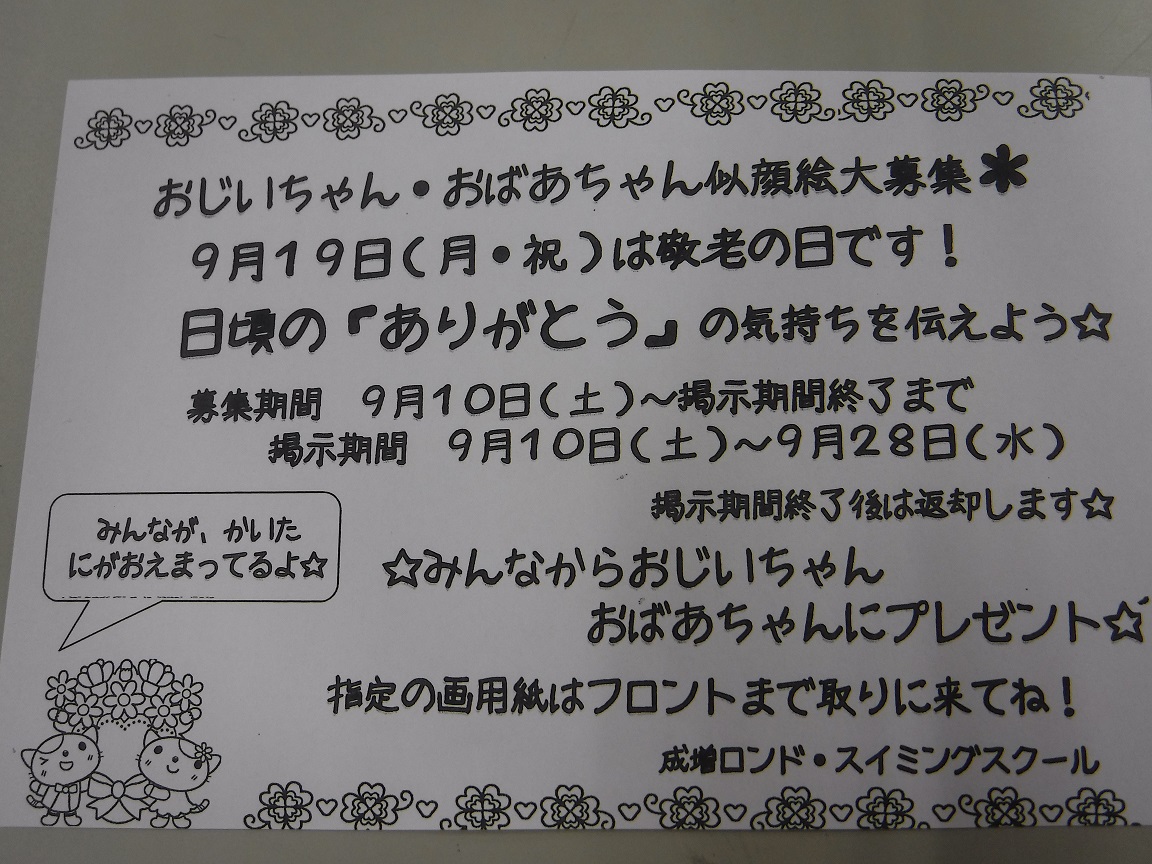 おじいちゃん・おばあちゃん似顔絵大募集✱
９月１９日（月・祝）は敬老の日です！
日頃の『ありがとう』の気持ちを伝えよう☆
募集期間　９月１０日（土）～掲示期間終了まで
掲示期間　９月１０日（土）～９月２８日（水）
掲示期間終了後は返却します☆
みんなが、かいた
にがおえまってるよ☆
☆みんなからおじいちゃん
おばあちゃんにプレゼント☆
指定の画用紙はフロントまで取りに来てね！
成増ロンド・スイミングスクール